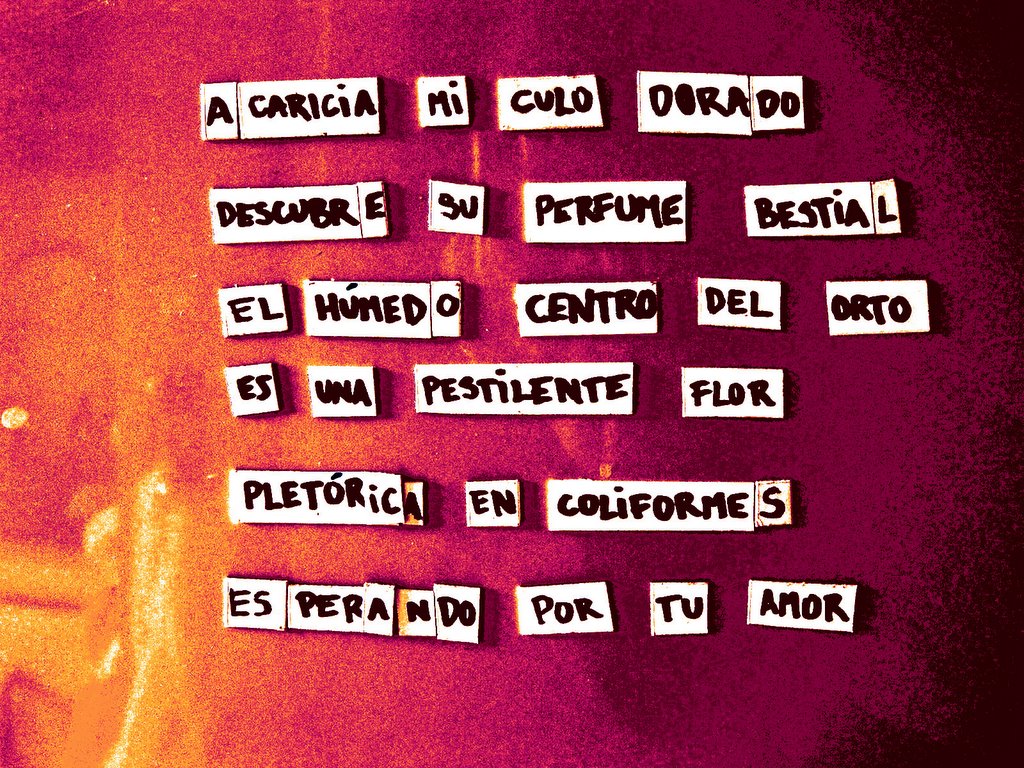 ACARICIA MI CULO DORADO
DESCUBRE SU PERFUME BESTIAL
EL HÚMEDO CENTRO DEL ORTO
ES UNA PESTILENTE FLOR
PLETÓRICA EN COLIFORMES
ESPERANDO POR TU AMOR